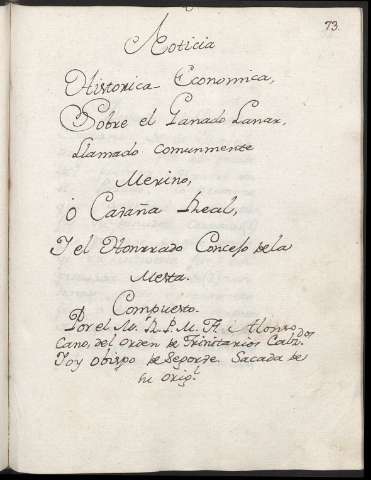 73.
Noticia
Historica Economica,
Sobre el Ganado Lanar,
Llamado comunmente
Merino,
ò Cavaña Real,
Y el Honrrado Concejo de la
Mesta.
Compuesto.
Por el Mo. R. P. M. Fr. Alonso
Cano, del orden de Trinitarios Calzdos
Y oy obispo de Segorve. Sacada de
su origl.